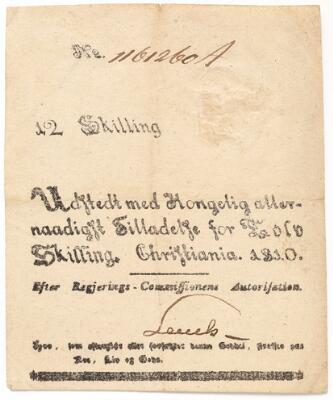 No. 116126０A
12 Skilling
Udstedt med Kongelig aller-
naadigst Tilladelse for Tolv
Skilling. Christiania. 1810.
Efter Regjerings-Commissionens Autorisation.
Hvo, som eftergiør eller forfalsker denne Seddel, straffes paa
Ære, Liv og Gods.